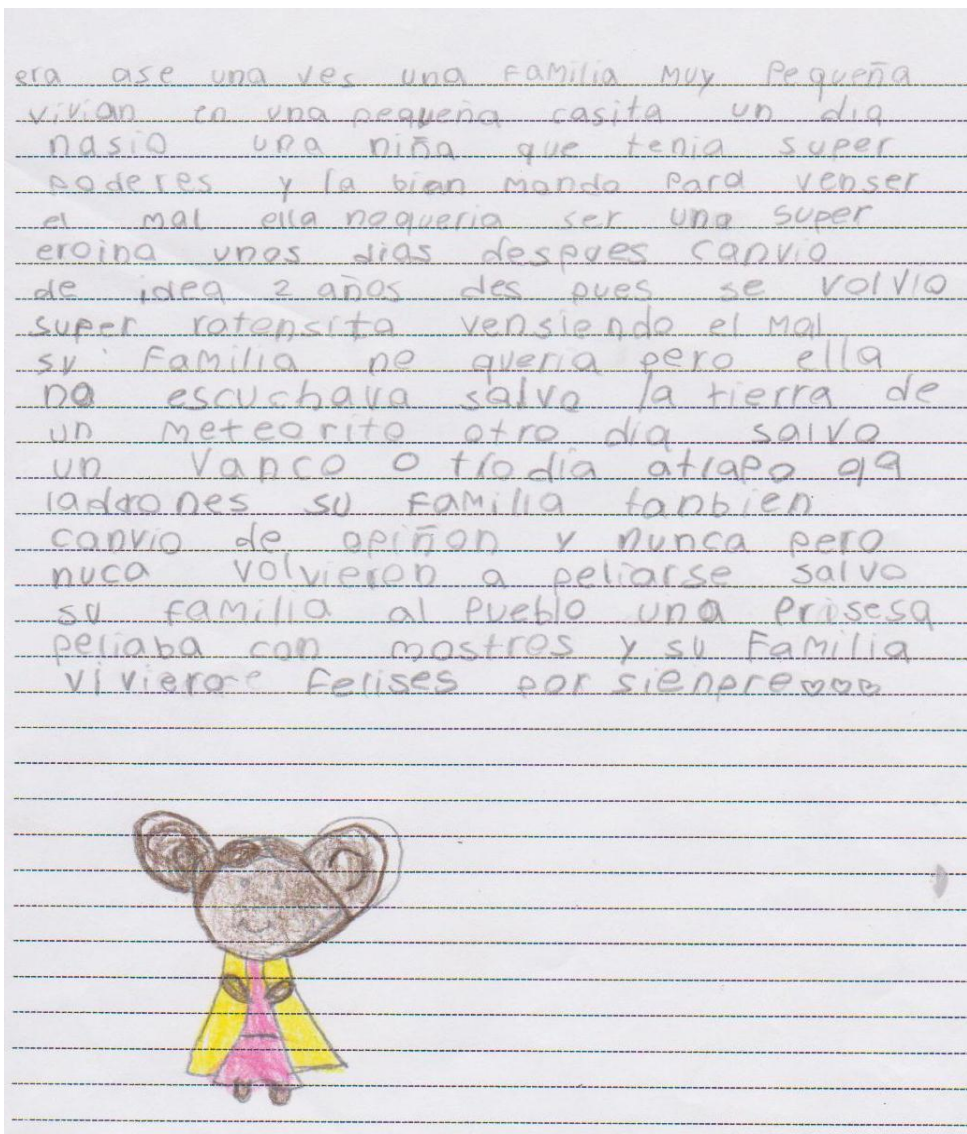 era ase una ves una familia muy pequeña
vivian en una pequeña casita un dia
nasio una niña que tenia super
poderes y la bian mondo para venser
el mal ella noqueria ser una super
eroina unos dias despues canvio
de idea 2 años des pues se volvio
super ratonsita vensiendo el mal
su familia no queria pero ella
no escuchava salvo la tierra de
un meteorito otro dia salvo
un vanco o tro dia atrapo 99
ladrones su familia tanbien
canvio de opiñon y nunca pero
nuca volvieron a peliarse salvo
su familia al pueblo una prisesa
peliaba con mostros y su familia
viviero felises por sienpre♡♡♡